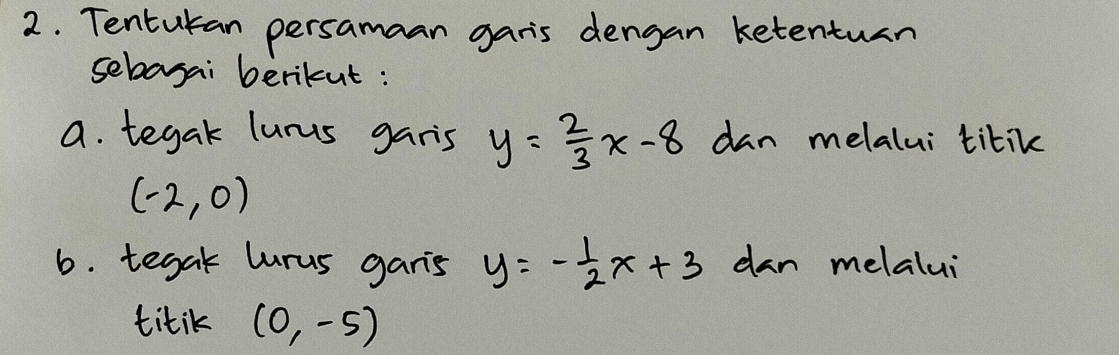 2. Tentukan persamaan garis dengan ketentuan
sebagai berikut :
a. tegak lurus garis y = 2/3 x - 8 dan melalui titik
(-2, 0)
b. tegak lurus garis y = - 1/2 x + 3 dan melalui
titik (0, -5)